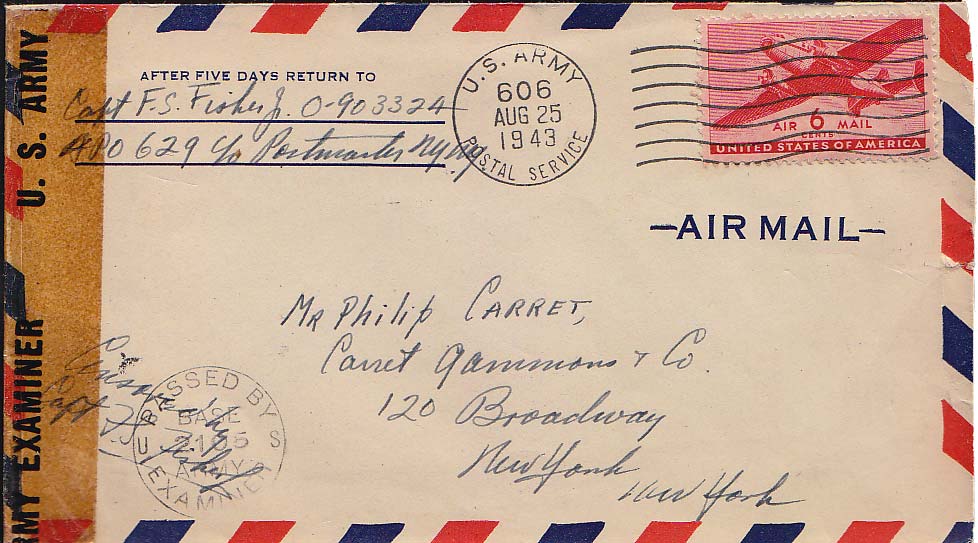 U. S. ARMY
ARMY EXAMINER
AFTER FIVE DAYS RETURN TO
Capt F.S. Fisher Jr. O-903324
APO 629 c/o Postmaster NY, NY
U.S. ARMY
606
AUG 25
1943
POSTAL SERVICE
AIR 6 MAIL
CENTS
UNITED STATES OF AMERICA
—AIR MAIL—
Mr Philip CARRET,
Carret Gammons & Co.
120 Broadway
New York
New York
Censored by
Capt F.S. Fisher Jr
PASSED BY
BASE
U S
ARMY
EXAMINER